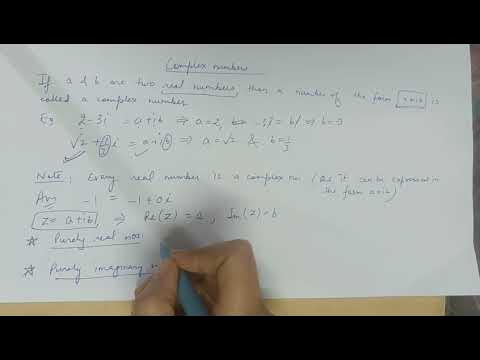 Complex numbers
If a & b are two real numbers, then a number of the form a+ib is
called a complex number
Eg 2-3i = a+ib ⇒ a=2, b= -3
√2 + 1/3 i = a+ib ⇒ a=√2 & b=1/3
Note: Every real number is a complex no. (as it can be expressed in
the form a+ib)
-1 = -1+0i
z= a+ib ⇒ Re(z) = a, Im(z)=b
☆ Purely real nos:
☆ Purely imaginary